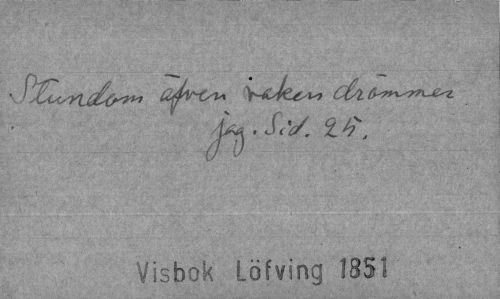 Stundom äfven vaken drömmer
jag. Sid. 25.
Visbok Löfving 1851